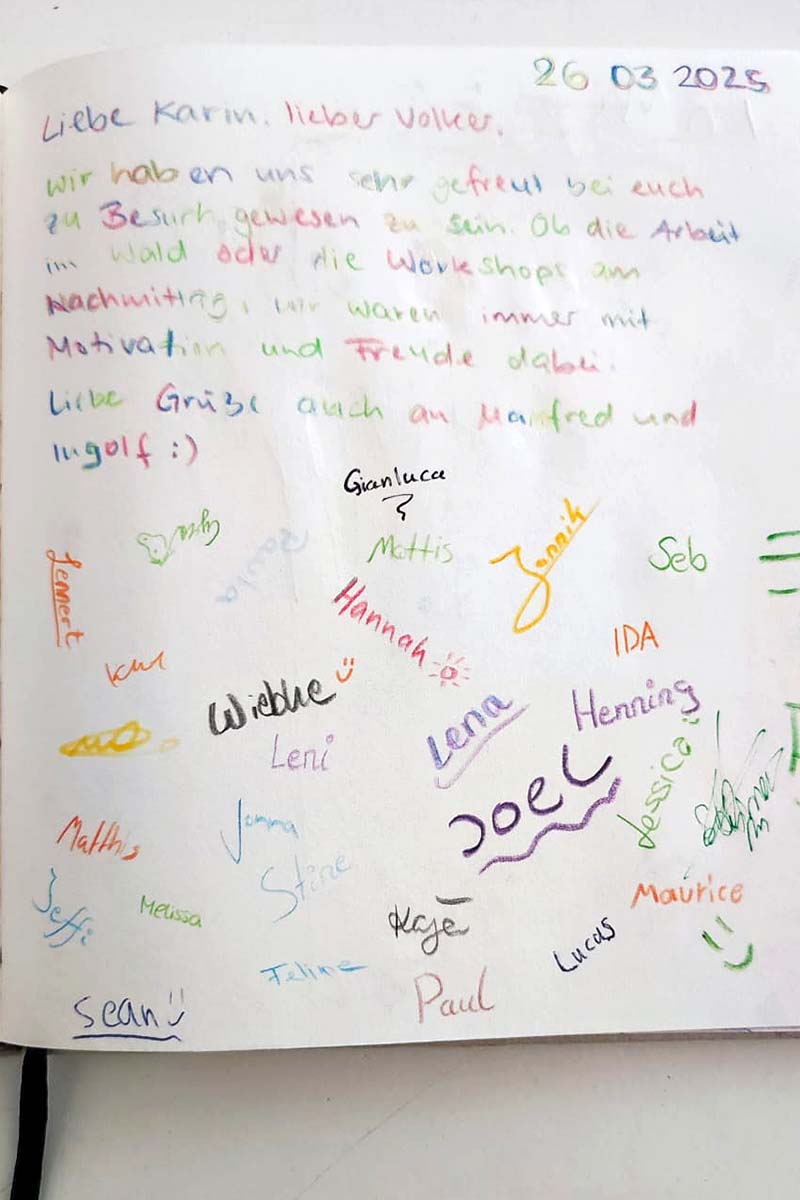 26 03 2025
Liebe Karin, lieber Volker,
wir haben uns sehr gefreut bei euch
zu Besuch gewesen zu sein. Ob die Arbeit
im Wald oder die Workshops am
Nachmittag, wir waren immer mit
Motivation und Freude dabei.
Liebe Grüße auch an Manfred und
Ingolf :)
Gianluca
Mattis
Jannik
Seb
Lennert
Paula
Hannah
IDA
Wiebke
Leni
Lena
Henning
JOEL
Jessica
Matthis
Jomma
Stine
Maurice
Jeffi
Melissa
Kaje
Lucas
Feline
Paul
Sean